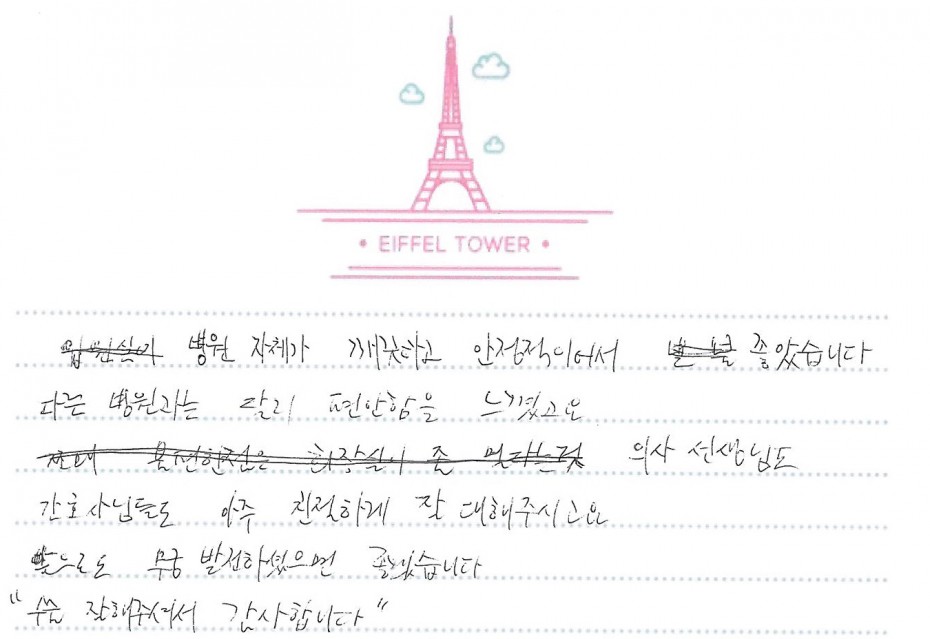 • EIFFEL TOWER •
병원 자체가 깨끗하고 안정적이어서 좋았습니다
다른 병원과는 달리 편안함을 느꼈고요
불편한점은 화장실이 좀 멀다는것 의사 선생님도
간호사님들도 아주 친절하게 잘 대해주시고요
앞으로도 무궁 발전하셨으면 좋겠습니다
"수술 잘해주셔서 감사합니다"